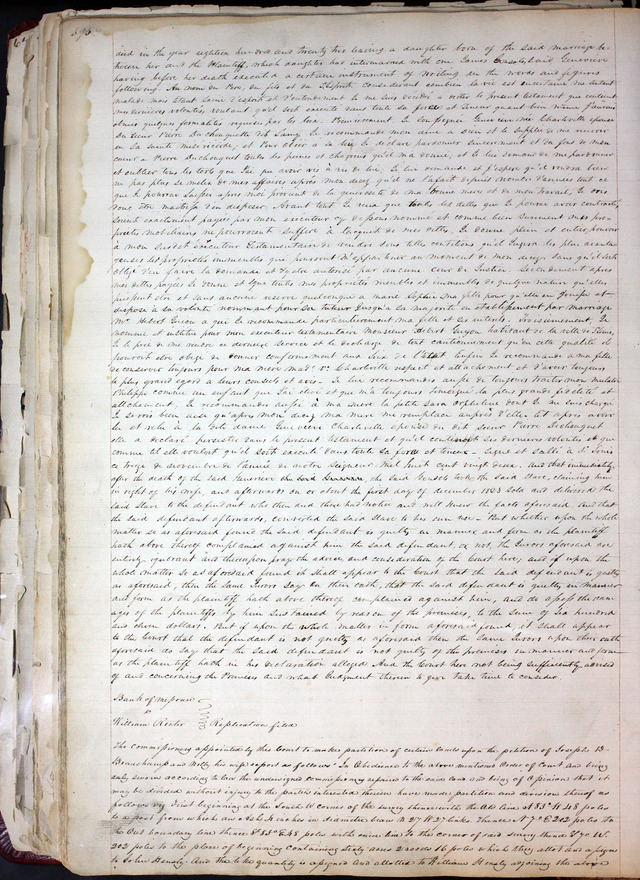 and in the year eighteen hundred and twenty two leaving a daughter born of the said marriage be-
tween her and the Plaintiff, which daughter has intermarried with one James said Genevieve
having before her death executed a certain instrument of writing in the words and figures
following. Au nom du Pere, du fils et du St Esprit, considerant combien la vie est incertaine, me sentant
malade mais étant saine d'esprit et d'entendement je me suis décidée a mettre le présent testament qui contient
mes dernières volontés voulant qu'il soit executé dans toute sa force et teneur quand bien même j'aurais
obmis quelques formalités requises par les loix. Premierement Je soussignée Genevieve née Charleville epouse
du Sieur Pierre Duchouquette
en sa sainte misericorde, et pour obeir a sa loi je declare pardonner sincerement et du fond de mon
coeur a Pierre Duchouquet toutes les peines et chagrins qu'il m'a donné, et je lui demande de me pardonner
et oublier tous les torts que j'ai pu avoir vis à vis de lui. Je lui demande et j'espere qu'il voudra bien
ne pas plus se meler de mes affaires après mon décès qu'il ne l'a fait depuis nombre d'années
que je pourrai laisser après moi provient de la generosité de ma bonne mere et de mon travail, Je crois
Avant tout Je veux que toutes les dettes que je pourrai avoir contracté
soient exactement payées par mon executeur cy dessous nommé et comme bien surement mes pro-
priétés mobiliaires ne pourront suffire à l'acquit de mes dettes, Je donne plein et entier pouvoir
à mon susdit Executeur testamentaire de vendre sous telles conditions qu'il jugera les plus avanta-
geuses les proprietés immeubles qui pourront m'appartenir au moment de mon décès sans qu'il soit
obligé d'en faire la demande et d'y etre autorisé par aucune cour de Justice. Secondement après
mes dettes payées je donne et legue toutes mes proprietés meubles et immeubles de quelque nature qu'elles
puissent etre et sans aucune reserve quelconque a Marie Sophie ma fille pour qu'elle en jouisse et
dispose à sa volonté nommant pour son tuteur jusqu'a sa majorité ou etablissement par mariage
Mr. Hebert Guion a que je recommande particulierement ma fille et ses interets. Troisiemement Je
nomme et institue pour mon executeur testamentaire Monsieur Hebert Guyon habitant de la ville de St Louis,
Je le prie de me rendre ce dernier service et le decharge de tout cautionnement qu'en cette qualité il
pourroit etre obligé de donner conformement aux Loix de l'état Enfin Je recommande a ma fille
de conserver toujours pour ma mere made. Ve. Charleville respect et attachement et d'avoir toujours
le plus grand egard a leurs conseils et avis. Je lui recommande aussi de toujours traiter mon mulatre
Philippe comme un enfant que j'ai elevé et qui m'a toujours temoigné la plus grande fidelité et
attachement. Je recommande aussi à ma mere la petite Sara orpheline dont je me suis chargée.
Je serois bien aise qu'après mon décès ma mere me remplace auprès d'elle. Et après avoir
lu et relu à la dite dame Genevieve Charleville epouse du dit Sieur Pierre Dechouquet
elle a declaré persister dans le present testament et qu'il contenoit ses dernieres volontés et que
comme tel elle vouloit qu'il soit executé dans toute sa force et teneur. Signé et scellé a St. Louis
ce treize de novembre de l'année de notre Seigneur Mil huit cent vingt deux. And that immediately
after the death of the said Genevieve the said took the said slave, claiming him
in right of his wife, and afterwards on or about the first day of december 1823 sold and delivered the
said slave to the defendant who then and there had notice and well knew the facts aforesaid. And that
the said defendant afterwards, converted the said slave to his own use. But whether upon the whole
matter so as aforesaid found the said defendant is guilty in manner and form as the plaintiff
hath above thereof complained against him the said defendant, or not, the Jurors aforesaid are
entirely ignorant and thereupon pray the advice and consideration of the Court here, and if upon the
whole matter so as aforesaid found it shall appear to the Court that the said defendant is guilty
as aforesaid, then the same Jurors say on their oath, that the said defendant is guilty in manner
and form as the plaintiff hath above thereof complained against him, and do assess the dam-
ages of the plaintiffs by him sustained by reason of the premises, to the sum of Six hundred
and seven dollars. But if upon the whole matter in form aforesaid found, it shall appear
to the Court that the defendant is not guilty as aforesaid then the same Jurors upon their oath
aforesaid do say that the said defendant is not guilty of the premises in manner and form
as the plaintiff hath in his declaration alleged. And the Court here not being sufficiently advised
of and concerning the Premises and what Judgment therein to give take time to consider.
Bank of Missouri
vs
William Rector Replication filed
The commissioners appointed by this Court to make partition of certain lands upon the petition of Joseph B.
Beauchamp and Milly his wife report as follows: In Obedience to the above mentioned Order of Court and being
duly sworn according to law the undersigned commissioners repaired to the said land and being of opinion that it
may be divided without injury to the parties interested therein have made partition and division thereof as
follows viz First beginning at the South W corner of the survey thence with the old line N 83° W 48 poles
to a post from which an Ash inches in diameter bears N 27 W 27 links. Thence N 7° E 202 poles to
the Out boundary line thence S 83° E 48 poles with said line to the corner of said survey thence S 7° W.
202 poles to the place of beginning containing sixty acres 2 roods 16 poles which they allot and assign
to John Hensly. And the like quantity is assigned and allotted to William Hensly adjoining the above